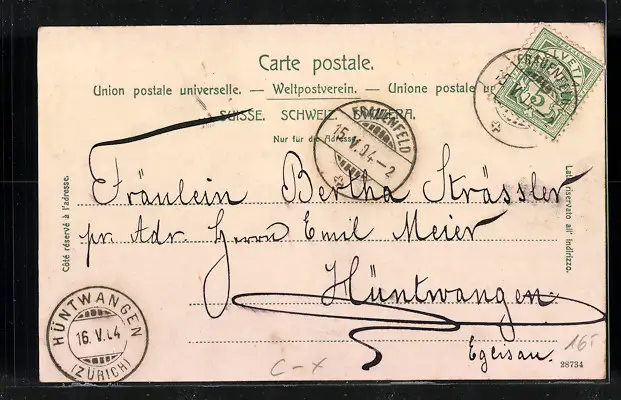 Carte postale.
Union postale universelle. — Weltpostverein. — Unione postale
SUISSE. SCHWEIZ. SVIZZERA.
Nur für die Adresse.
FRAUENFELD
15.V.04.–2
FRAUENFELD
Côté réservé à l'adresse.
Lato riservato all' indirizzo.
Fräulein Bertha Strässler
pr. Adr. Herrn Emil Meier
Hüntwangen
Egeisau.
HÜNTWANGEN
16.V.04
(ZÜRICH)
C-x
28734